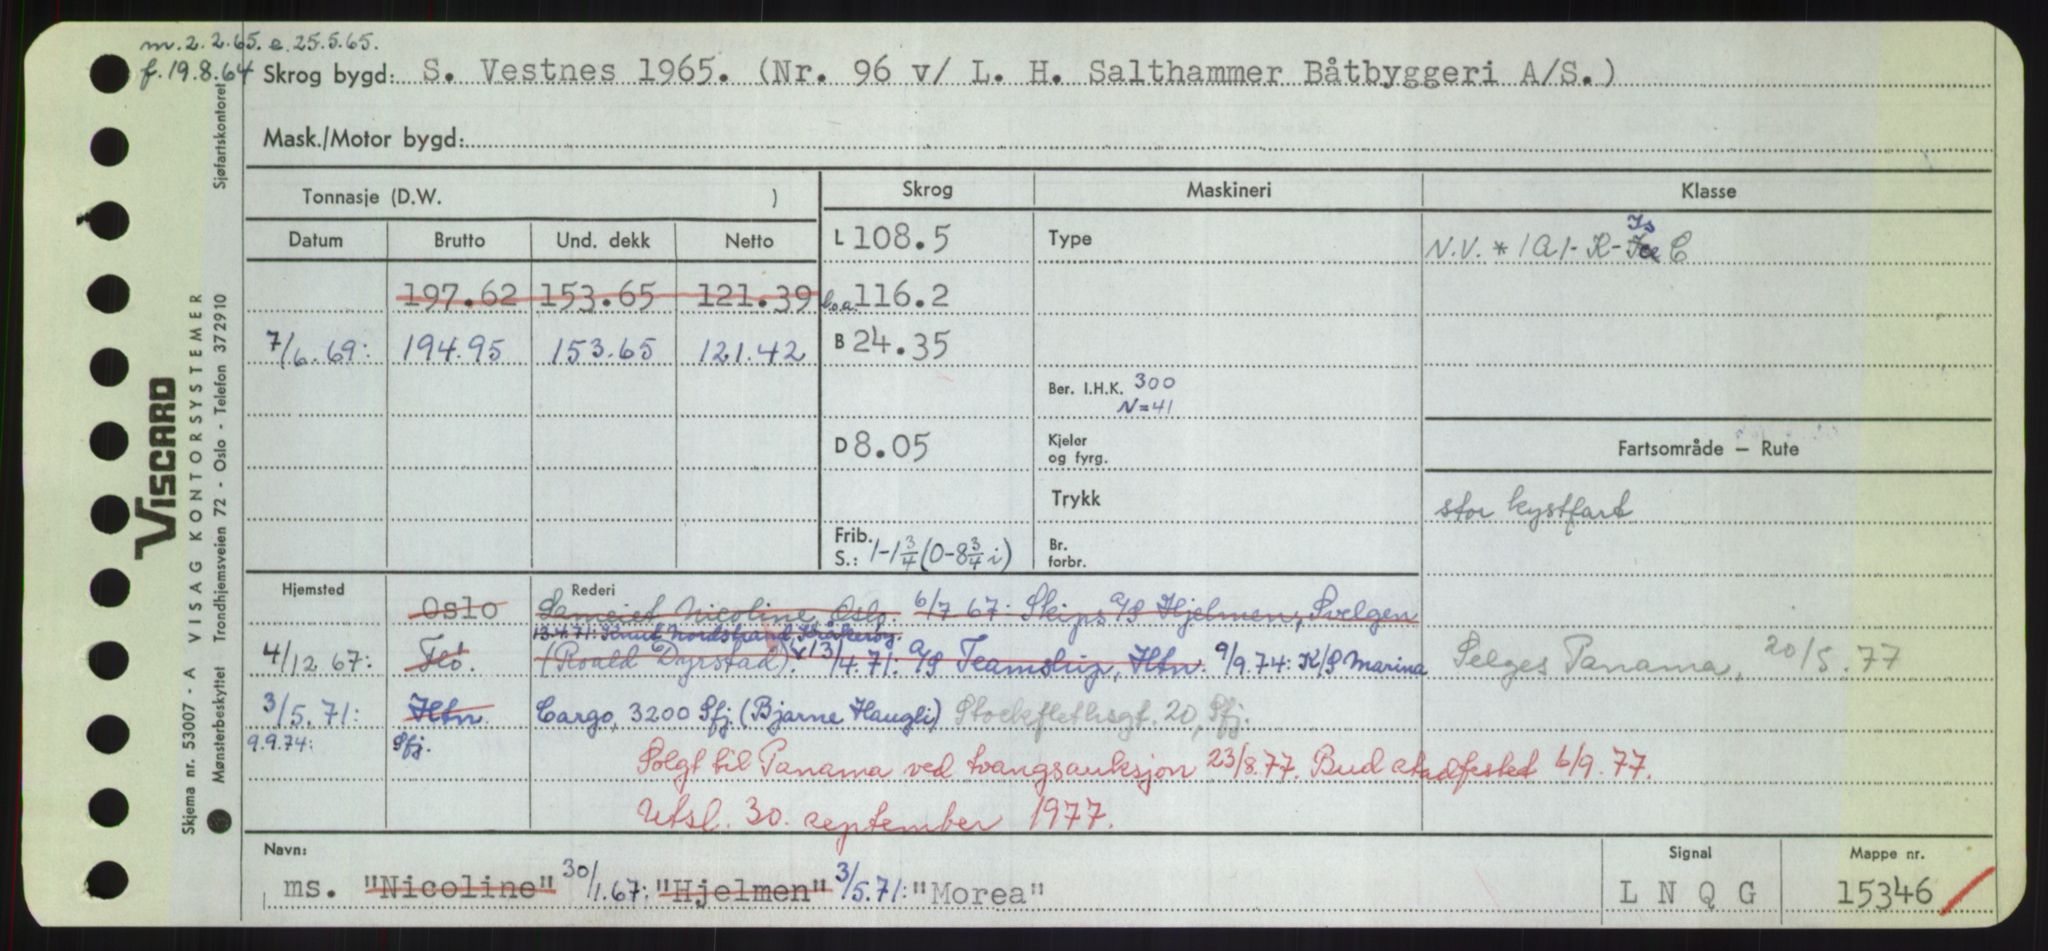 m. 2.2.65. e. 25.5.65.
f. 19.8.64 Skrog bygd: S. Vestnes 1965. (Nr. 96 v/ L. H. Salthammer Båtbyggeri A/S.)
Mask./Motor bygd:
Tonnasje (D.W. ) Skrog Maskineri Klasse
Datum Brutto Und. dekk Netto L 108.5 Type N.V. * 1A1- K- Is C
197.62 153.65 121.39 l.o.a. 116.2
7/6.69: 194.95 153.65 121.42 B 24.35
Ber. I.H.K. 300
N=41
D 8.05 Kjeler og fyrg. Fartsområde – Rute
Trykk stor kystfart
Frib. S.: 1-1 3/4 (0-8 3/4 i) Br. forbr.
Hjemsted Oslo Rederi Sameiet Nicoline, Oslo. 6/7 67: Skips A/S Hjelmen, Svelgen
13.4.71: Knut Nordstrand, Kråkerøy.
4/12 67: Flo. (Roald Dyrstad). 13/4.71: A/S Teamship, Htn. 9/9.74: K/S Marina Selges Panama, 20/5.77
3/5.71: Htn. Cargo, 3200 Sfj. (Bjarne Haugli) Stockflethsgt. 20, Sfj.
9.9.74: Sfj.
Solgt til Panama ved tvangsauksjon 23/8.77. Bud stadfestet 6/9.77.
Utsl. 30. september 1977.
Navn: Signal Mappe nr.
ms. "Nicoline" 30/1.67: "Hjelmen" 3/5.71: "Morea" L N Q G 15346
VISCARD
Skjema nr. 53007 - A VISAG KONTORSYSTEMER
Mønsterbeskyttet Trondhjemsveien 72 - Oslo - Telefon 372910 Sjøfartskontoret